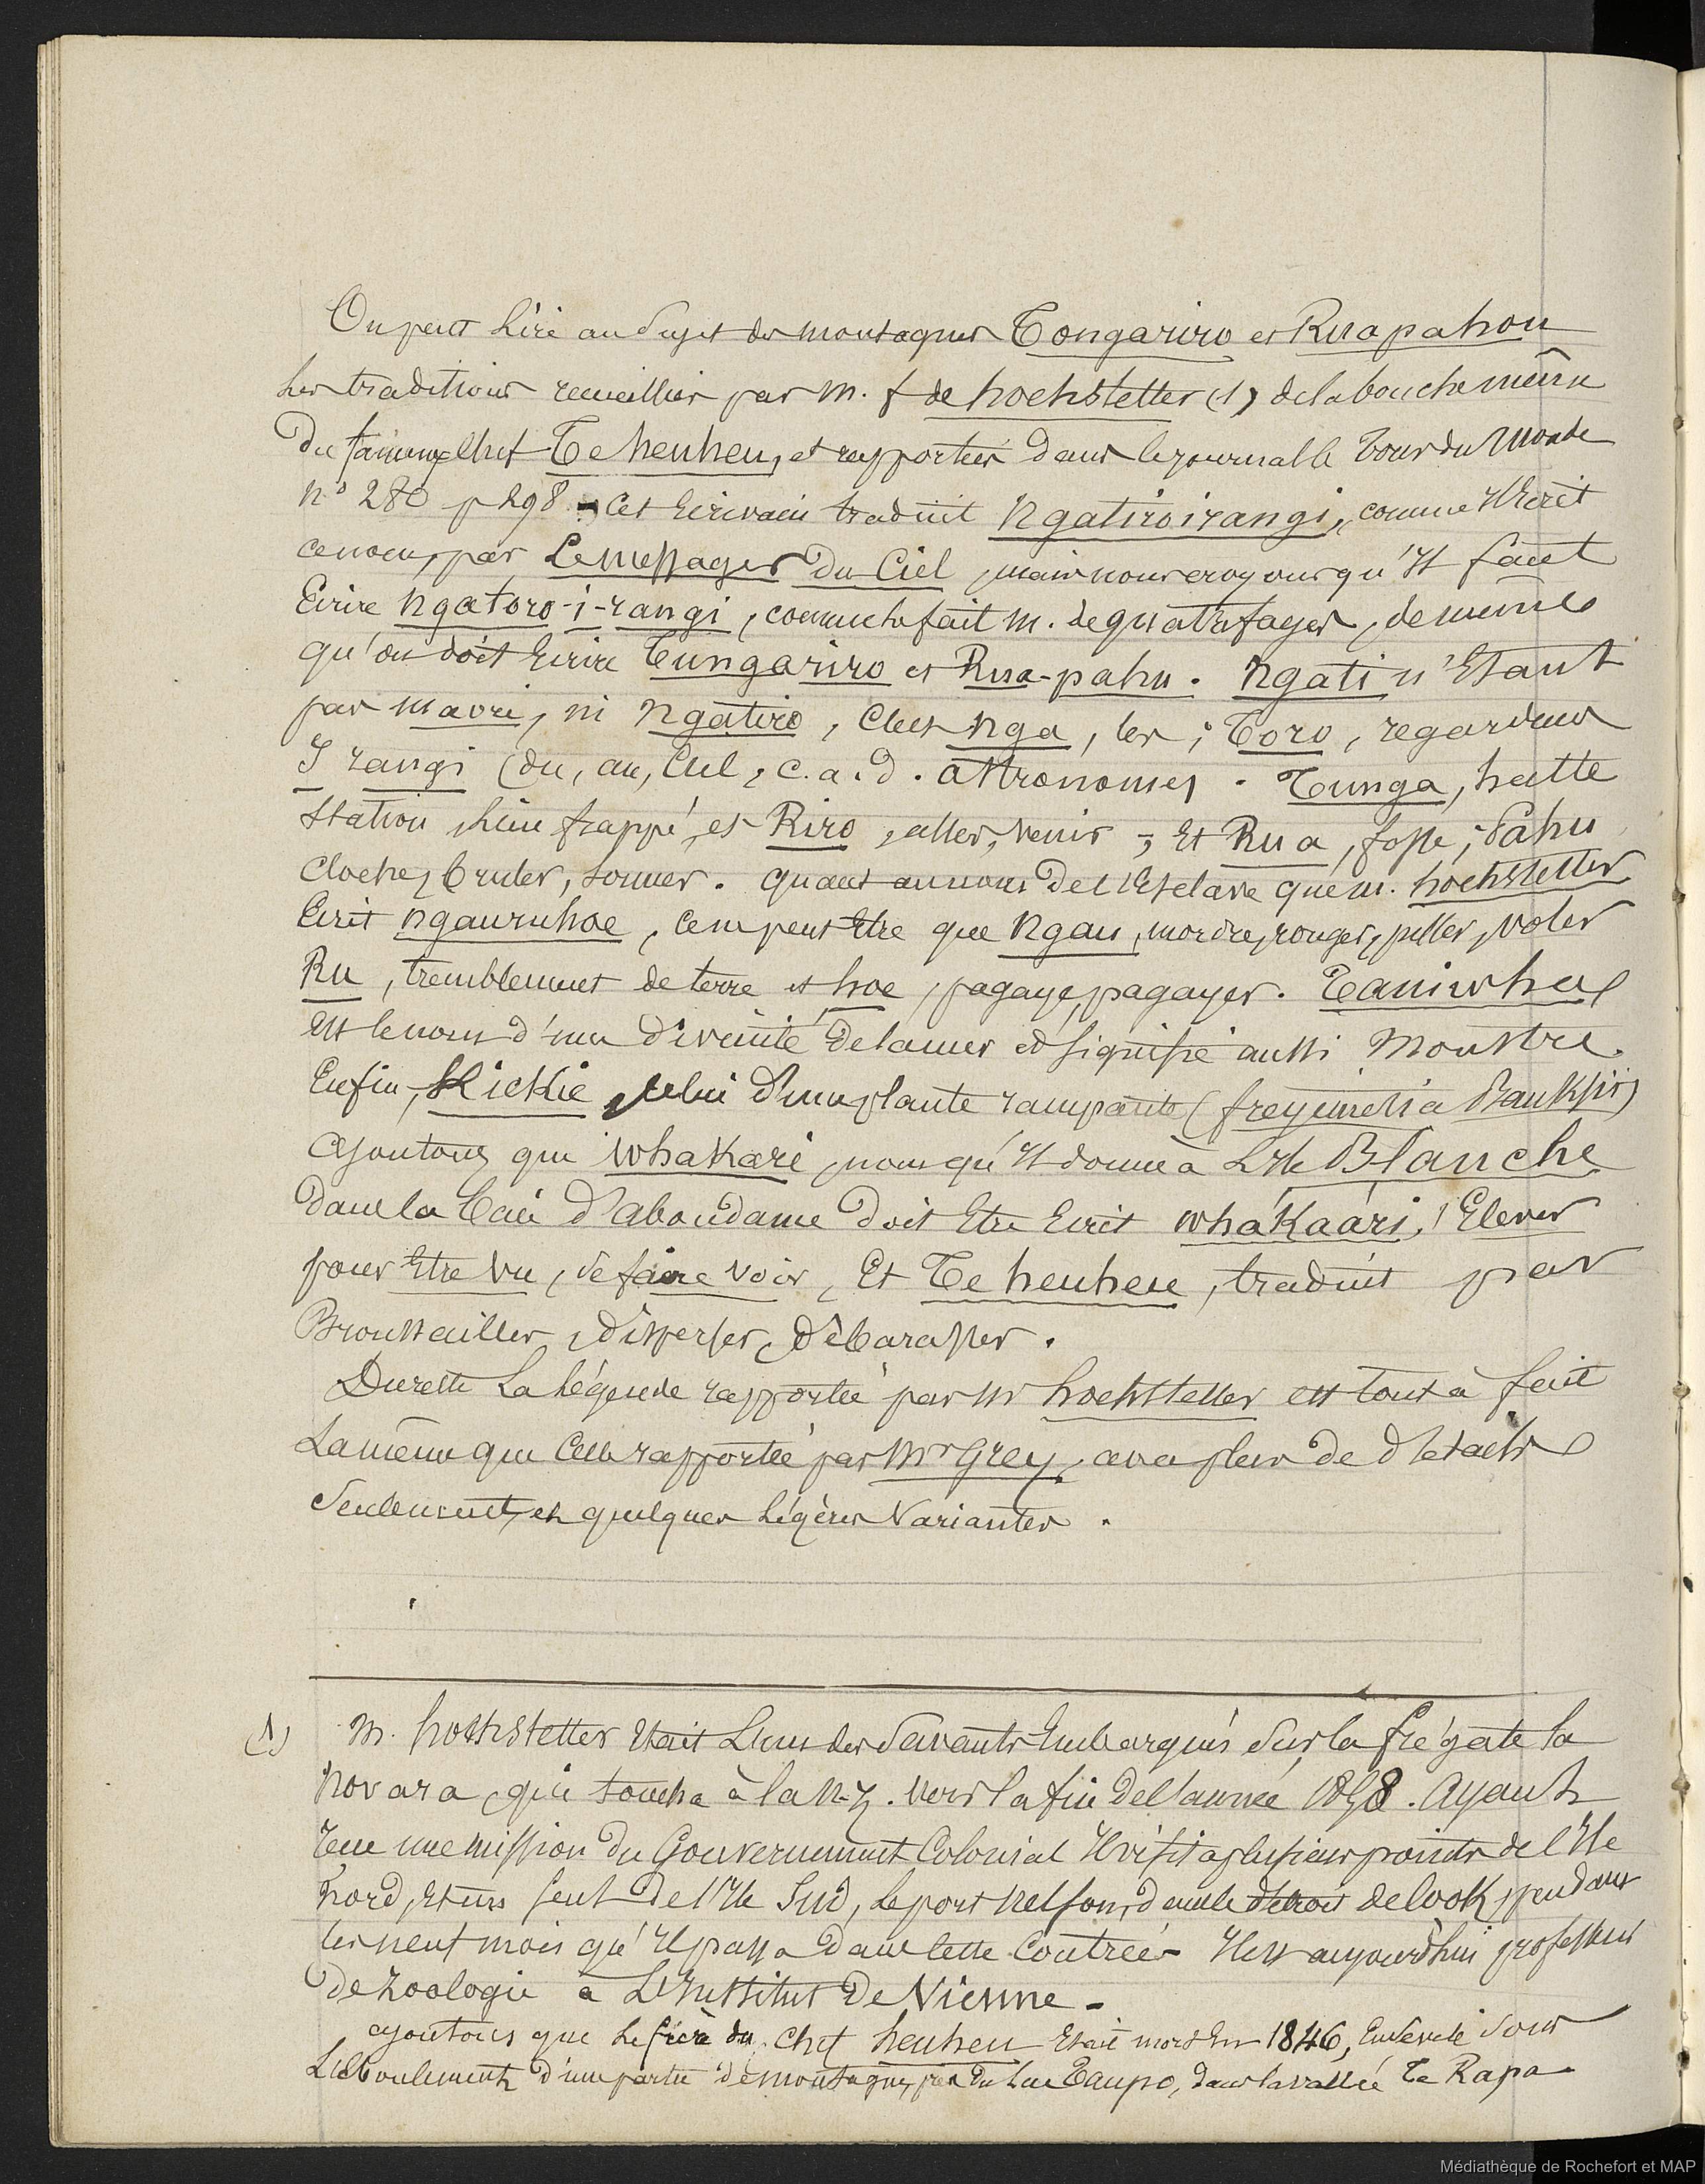 On peut lire au sujet des montagnes Tongariro et Ruapahou
les traditions recueillies par M. f de hochstetter (1) de la bouche même
du fameux chef Te heuheu, et rapportées dans le journal le Tour du Monde
n° 280 p 298 - Cet Ecrivain traduit Ngatiroirangi, comme Il Ecrit
ce nom, par Le messager du Ciel, mais nous croyons qu'Il faut
Ecrire Ngatoro-i-rangi, comme la fait M. de quatrefages, de même
qu'on doit Ecrire Tungariro et Rua-pahu. Ngati n'Etant
pas maori, ni Ngatiro, C'est Nga, les ; Toro, regardeurs
I rangi (du, au, Ciel, c.a.d. astronomes. Tunga, hutte
station, lieu frappé, et Riro, aller, venir ; Et Rua, fosse ; Pahu
cloche, bruler, sonner. quant au nom de l'Esclave que M. hochstetter
Ecrit Ngauruhoe, ce ne peut Etre que Ngau, mordre, ronger, piller, voler
Ru, tremblement de terre et hoe, pagaye, pagayer. Taniwha,
est le nom d'une divinité de la mer et signifie aussi Monstre.
Enfin, KieKie, celui d'une plante rampante (freycinetia Banksii)
Ajoutons que WhaKari, nom qu'Il donne à L'Ile Blanche
dans la baie d'abondance doit Etre Ecrit whaKaari, Elever
pour Etre vu, se faire voir, Et Te heuheu, traduit par
Broussailles, disperser, débarasser.
Du reste La légende rapportée par Mr hochstetter est tout à fait
La même que Celle rapportée par Mr Grey, avec plus de détails
seulement, et quelques légères variantes.
(1) M. hochstetter Etait L'un des Savants Embarqués sur la frégate la
Novara, qui toucha à la N.Z. vers la fin de l'année 1858. Ayant
reçu une mission du Gouvernement Colonial Il visita plusieurs points de l'Ile
Nord, Et un seul de l'Ile Sud, le port Nelson, dans le détroit de Cook, pendant
les neuf mois qu'Il passa dans cette Contrée - Il est aujourd'hui professeur
de zoologie à L'Institut de Vienne -
ajoutons que le frère du chef heuheu Etait mort En 1846, Enseveli sous
L'éboulement d'une partie de montagne, près du Lac Taupo, dans la vallée Te Rapa -
Médiathèque de Rochefort et MAP